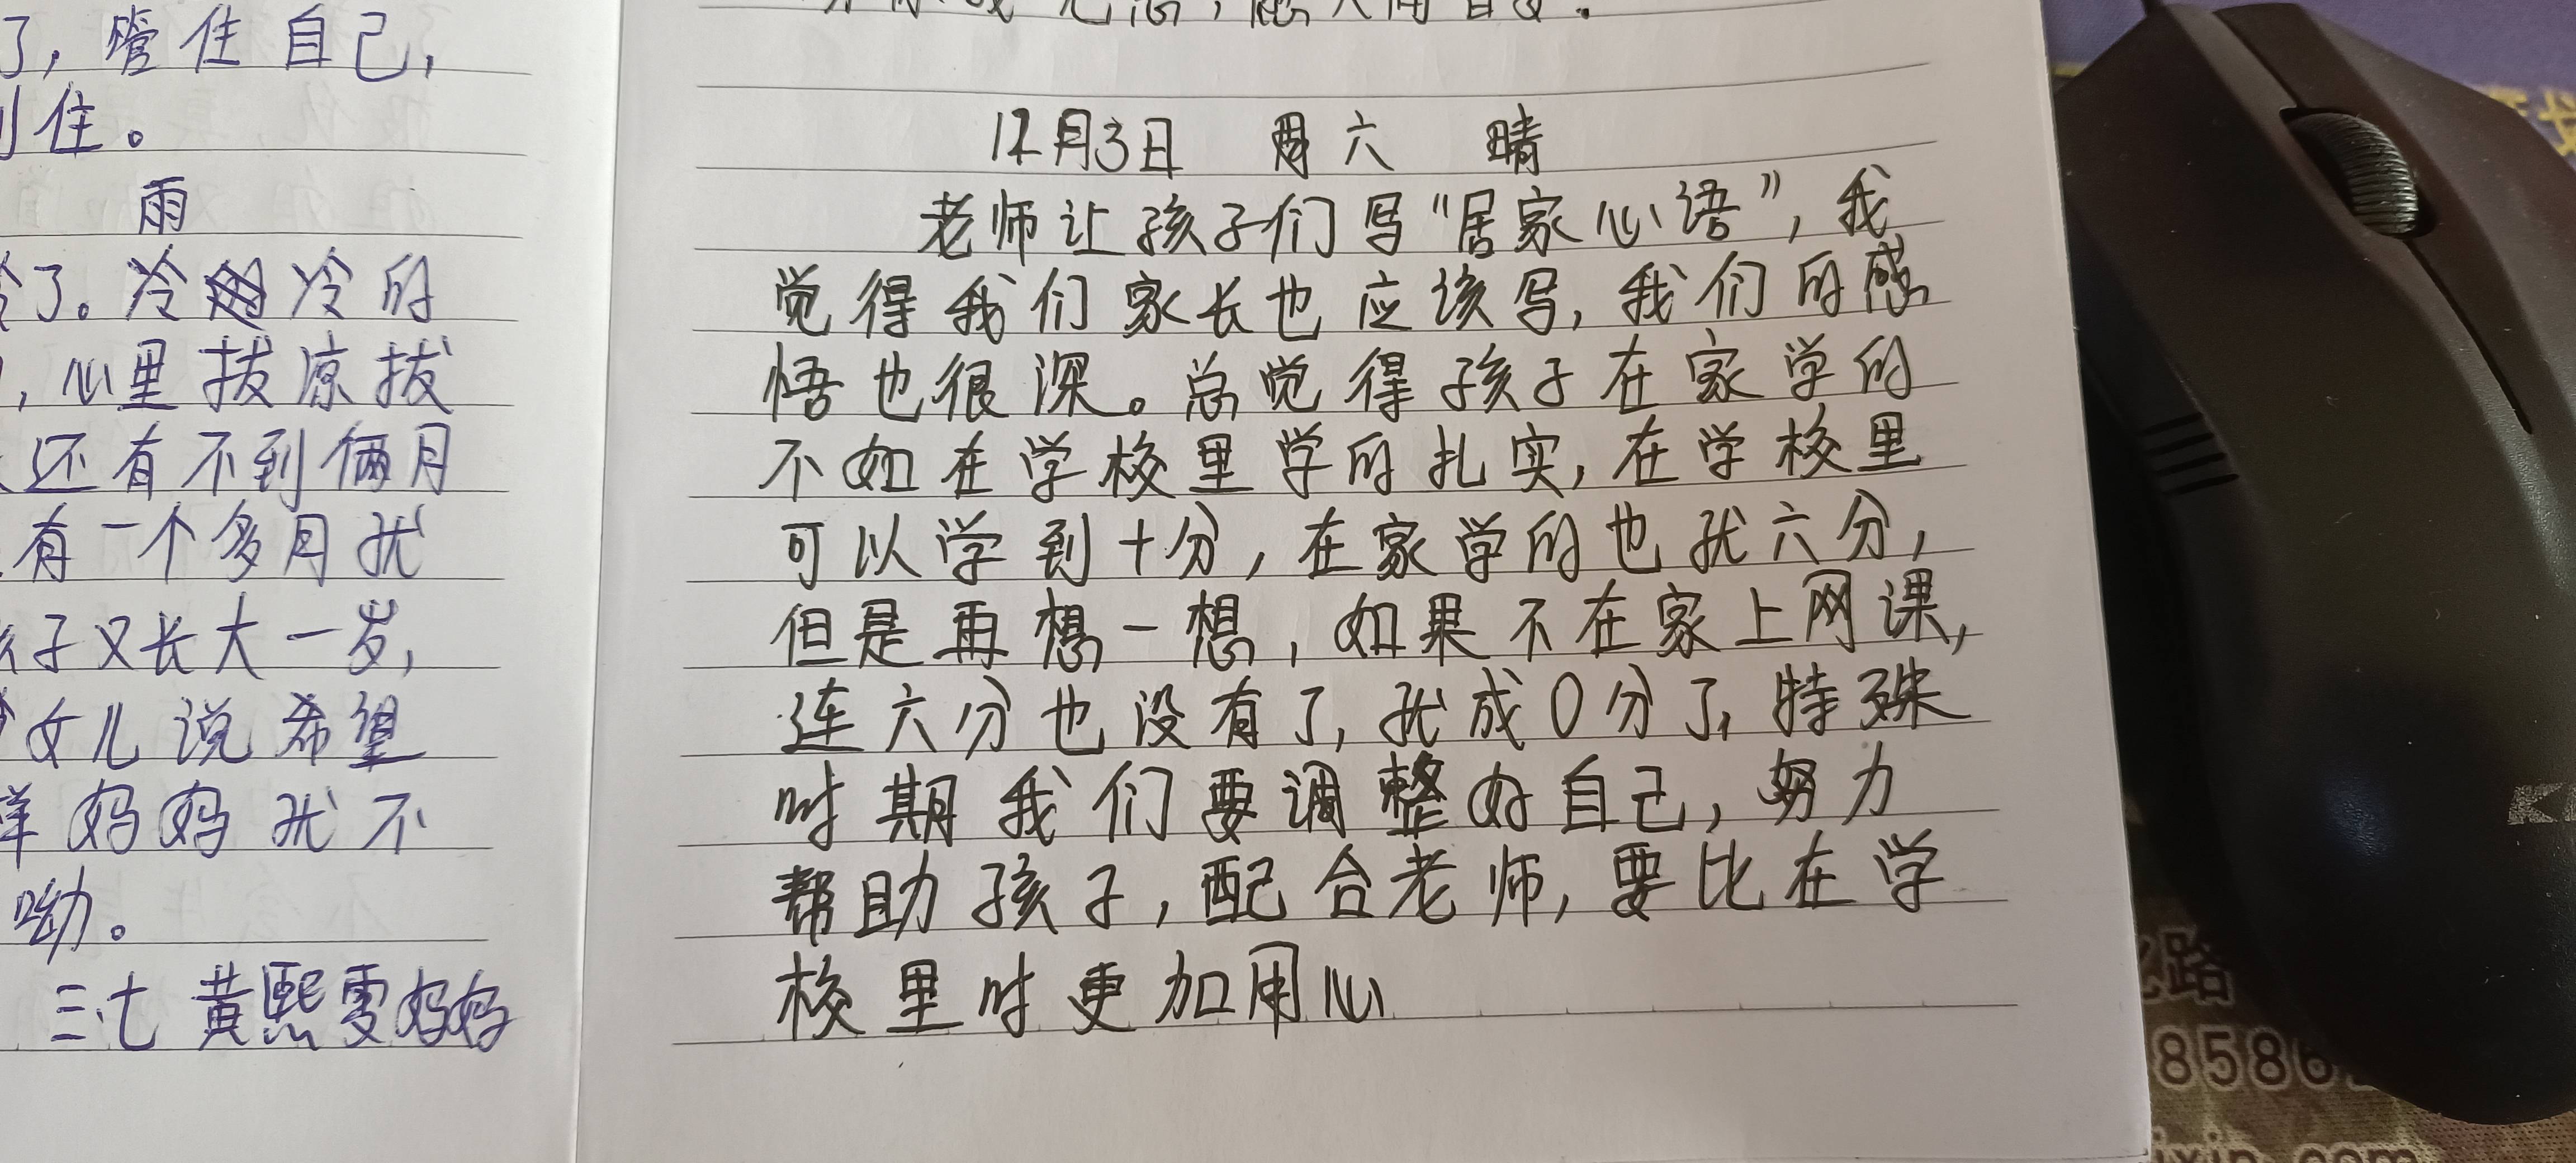 了，管住自己，
住。
雨
了。冷冷的
，心里拔凉拔
还有不到俩月
有一个多月扰
子又长大一岁，
女儿说希望
样妈妈扰不
呦。
三七 黄熙雯妈妈
12月3日 周六 晴
老师让孩子们写“居家心语”，我
觉得我们家长也应该写，我们的感
悟也很深。总觉得孩子在家学的
不如在学校里学的扎实，在学校里
可以学到十分，在家学的也扰六分，
但是再想一想，如果不在家上网课，
连六分也没有了，扰成0分了，特殊
时期我们要调整好自己，努力
帮助孩子，配合老师，要比在学
校里时更加用心
路
8586